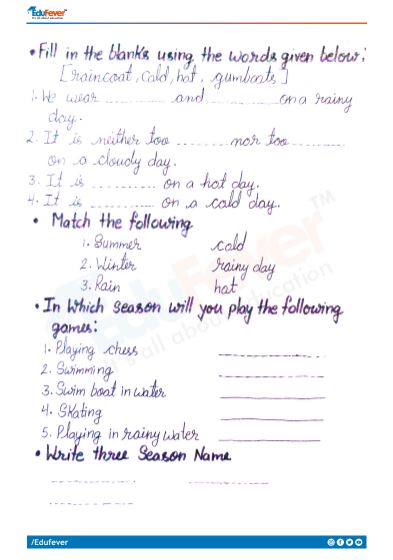 EduFever
It's all about education
• Fill in the blanks using the words given below:
[raincoat, cold, hot, gumboots]
1. We wear .......... and .......... on a rainy
day.
2. It is neither too .......... nor too ..........
on a cloudy day.
3. It is .......... on a hot day.
4. It is .......... on a cold day.
• Match the following
1. Summer cold
2. Winter rainy day
3. Rain hot
EduFever™
It's all about education
• In which season will you play the following
games:
1. Playing chess ----------
2. Swimming ----------
3. Swim boat in water ----------
4. Skating ----------
5. Playing in rainy water ----------
• Write three Season Name
---------- ----------
----------
/Edufever